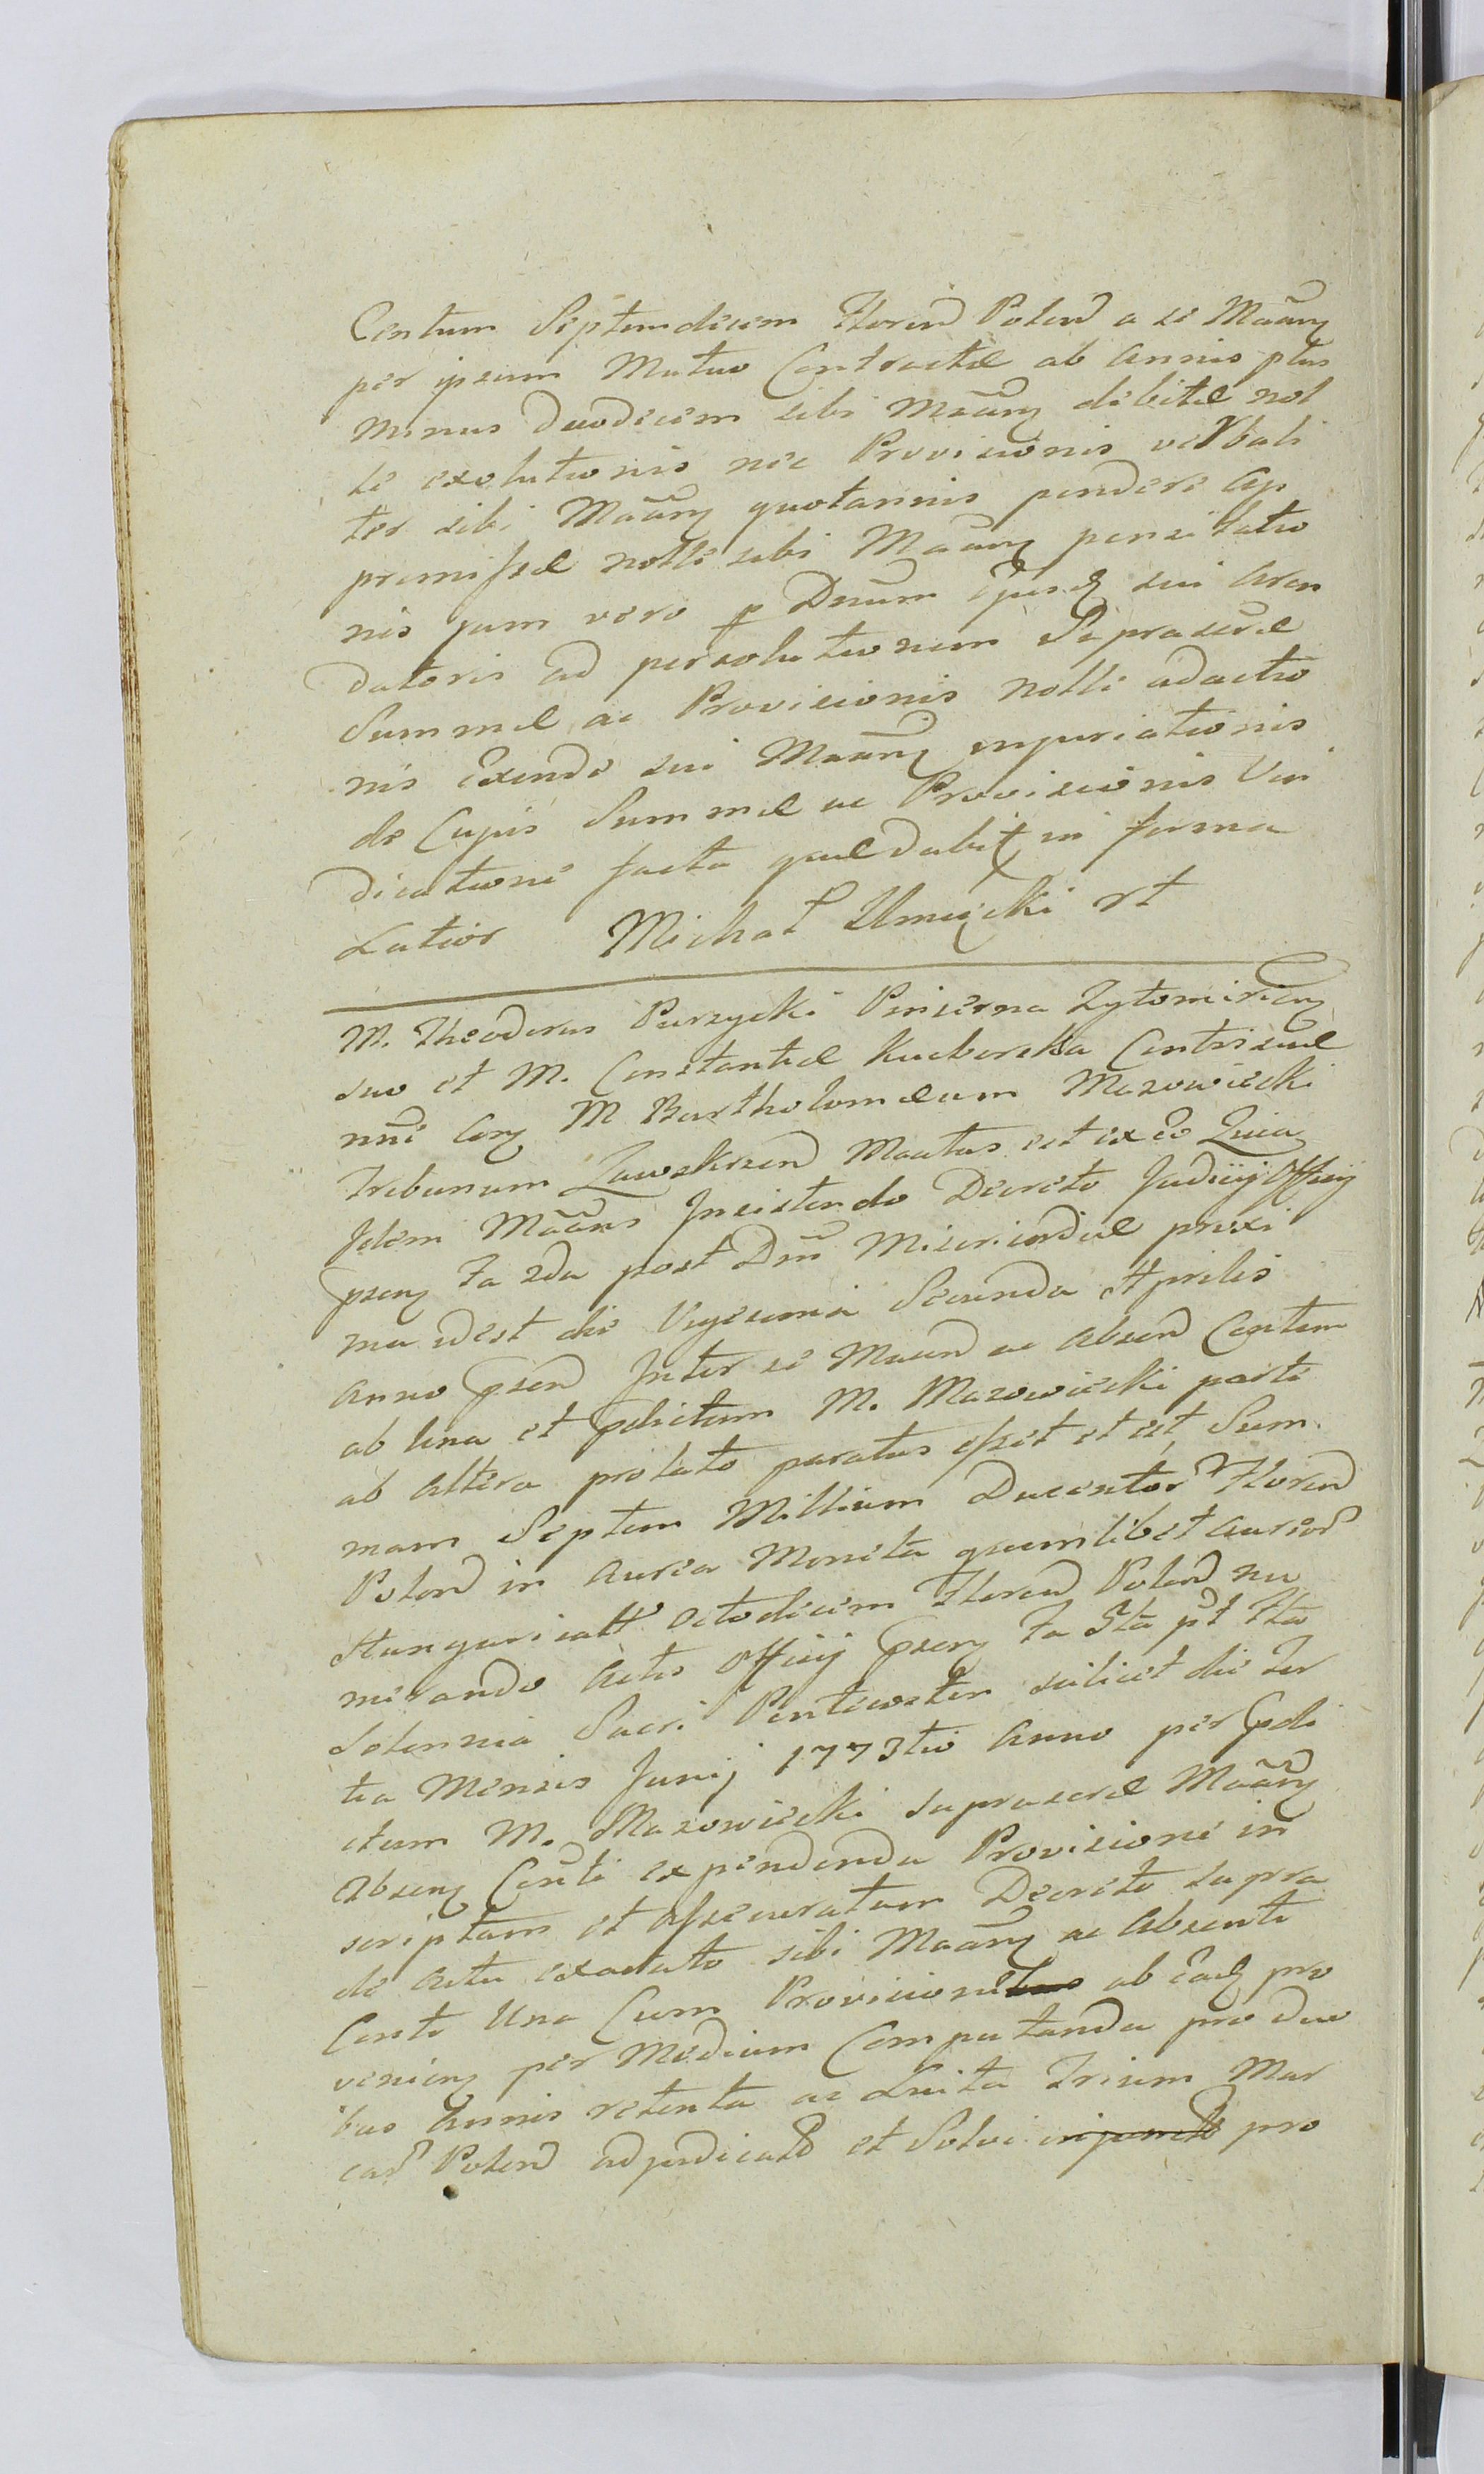 Centum Septemdecim Floren Polon a se Maãnẽ
per ipsum Mutuo Contractæ ab annis plus
minus Duodecim sibi Maãnẽ debitæ nol
le exolutionis nec Provisionis verbali
ter sibi Maãnẽ quotannis pendere ap
promissæ nolle sibi Maãnẽ pensitatio
nis jam vero p Dnum ejusdẽ sui Aren
datoris ad persolutionem Suprascræ
Summæ ac Provisionis nolle adactio
nis exinde sui Maãnẽ injuriationis
de Cujus Summæ ac Provisionis Vin
dicatione facta quæ dabit in forma
Latior Michał Umięcki rt
M. Theodorus Purzycki Pincerna Zytomirien
suo et M. Constantiæ Kucborska Contrisuæ
nne cor M Bartholomæum Mazowiecki
Tribunum Zawskrzen Maatus est ex eo Quia
Idem Maãns Insistendo Decreto Judicij Officij
præsen fa 2da post Dm̃ Misericordiæ proxi
ma idest die Vigesima Secunda Aprilis
Anno præsen Inter se Maan ac Absen Contem
ab una et prædictum M. Mazowiecki parte
ab altera prolato paratus esset et est Sum
mam Septem Millium Ducentor Floren
Polon in aurea Moneta quemlibet aureor
Hungaricalt octodecim Floren Polon nu
merando Actis Officij præsen fa 5ta pt Fta
Solennia Sacri Pentecosten scilicet die Ter
tia Mensis Junij 1773tio Anno per prædi
ctum M. Mazowiecki suprascræ Maãnẽ
Absen Conti expendenda Provisione in
scriptam et assecuratam Decreto supra
de actu exactuto sibi Maãnẽ ac Absenti
Conti Una Cum Provisione ab eadẽ pro
venien per Medium Computanda pro duo
bus Annis retenta ac Luita Trium Mar
car Polon adjudicato et Solvi injuncto pro